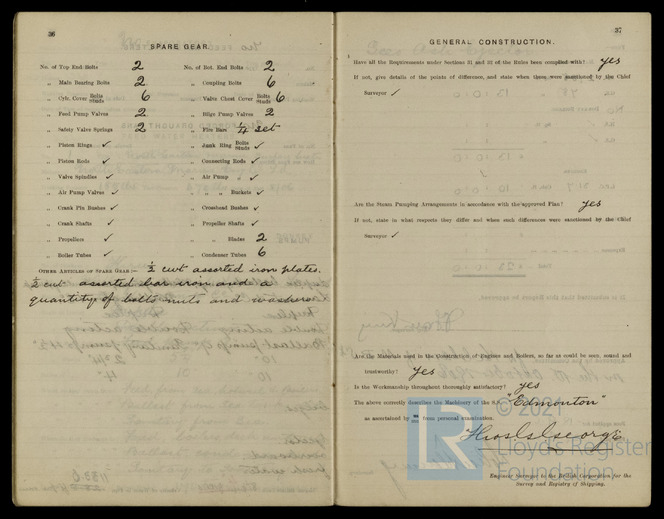 36
SPARE GEAR.
No. of Top End Bolts 2 No. of Bot. End Bolts 2
„ Main Bearing Bolts 2 „ Coupling Bolts 6
„ Cylr. Cover Bolts Studs 6 „ Valve Chest Cover Bolts Studs 6
„ Feed Pump Valves 2 „ Bilge Pump Valves 2
„ Safety Valve Springs 2 „ Fire Bars ¼ set
„ Piston Rings ✓ „ Junk Ring Bolts Studs ✓
„ Piston Rods ✓ „ Connecting Rods ✓
„ Valve Spindles ✓ „ Air Pump „ ✓
„ Air Pump Valves ✓ „ „ Buckets ✓
„ Crank Pin Bushes ✓ „ Crosshead Bushes ✓
„ Crank Shafts ✓ „ Propeller Shafts ✓
„ Propellers ✓ „ „ Blades 2
„ Boiler Tubes ✓ „ Condenser Tubes 6
OTHER ARTICLES OF SPARE GEAR:— ½ cwt assorted iron plates,
½ cwt assorted bar iron and a
quantity of bolts nuts and washers
37
GENERAL CONSTRUCTION.
Have all the Requirements under Sections 21 and 22 of the Rules been complied with? yes
If not, give details of the points of difference, and state when these were sanctioned by the Chief
Surveyor ✓
Are the Steam Pumping Arrangements in accordance with the approved Plan? yes
If not, state in what respects they differ and when such differences were sanctioned by the Chief
Surveyor ✓
Are the Materials used in the Construction of Engines and Boilers, so far as could be seen, sound and
trustworthy? yes
Is the Workmanship throughout thoroughly satisfactory? yes
The above correctly describes the Machinery of the S.S. "Edmonton"
as ascertained by from personal examination.
© 2021
LR Lloyd's Register
Foundation
Engineer Surveyor to the British Corporation for the
Survey and Registry of Shipping.